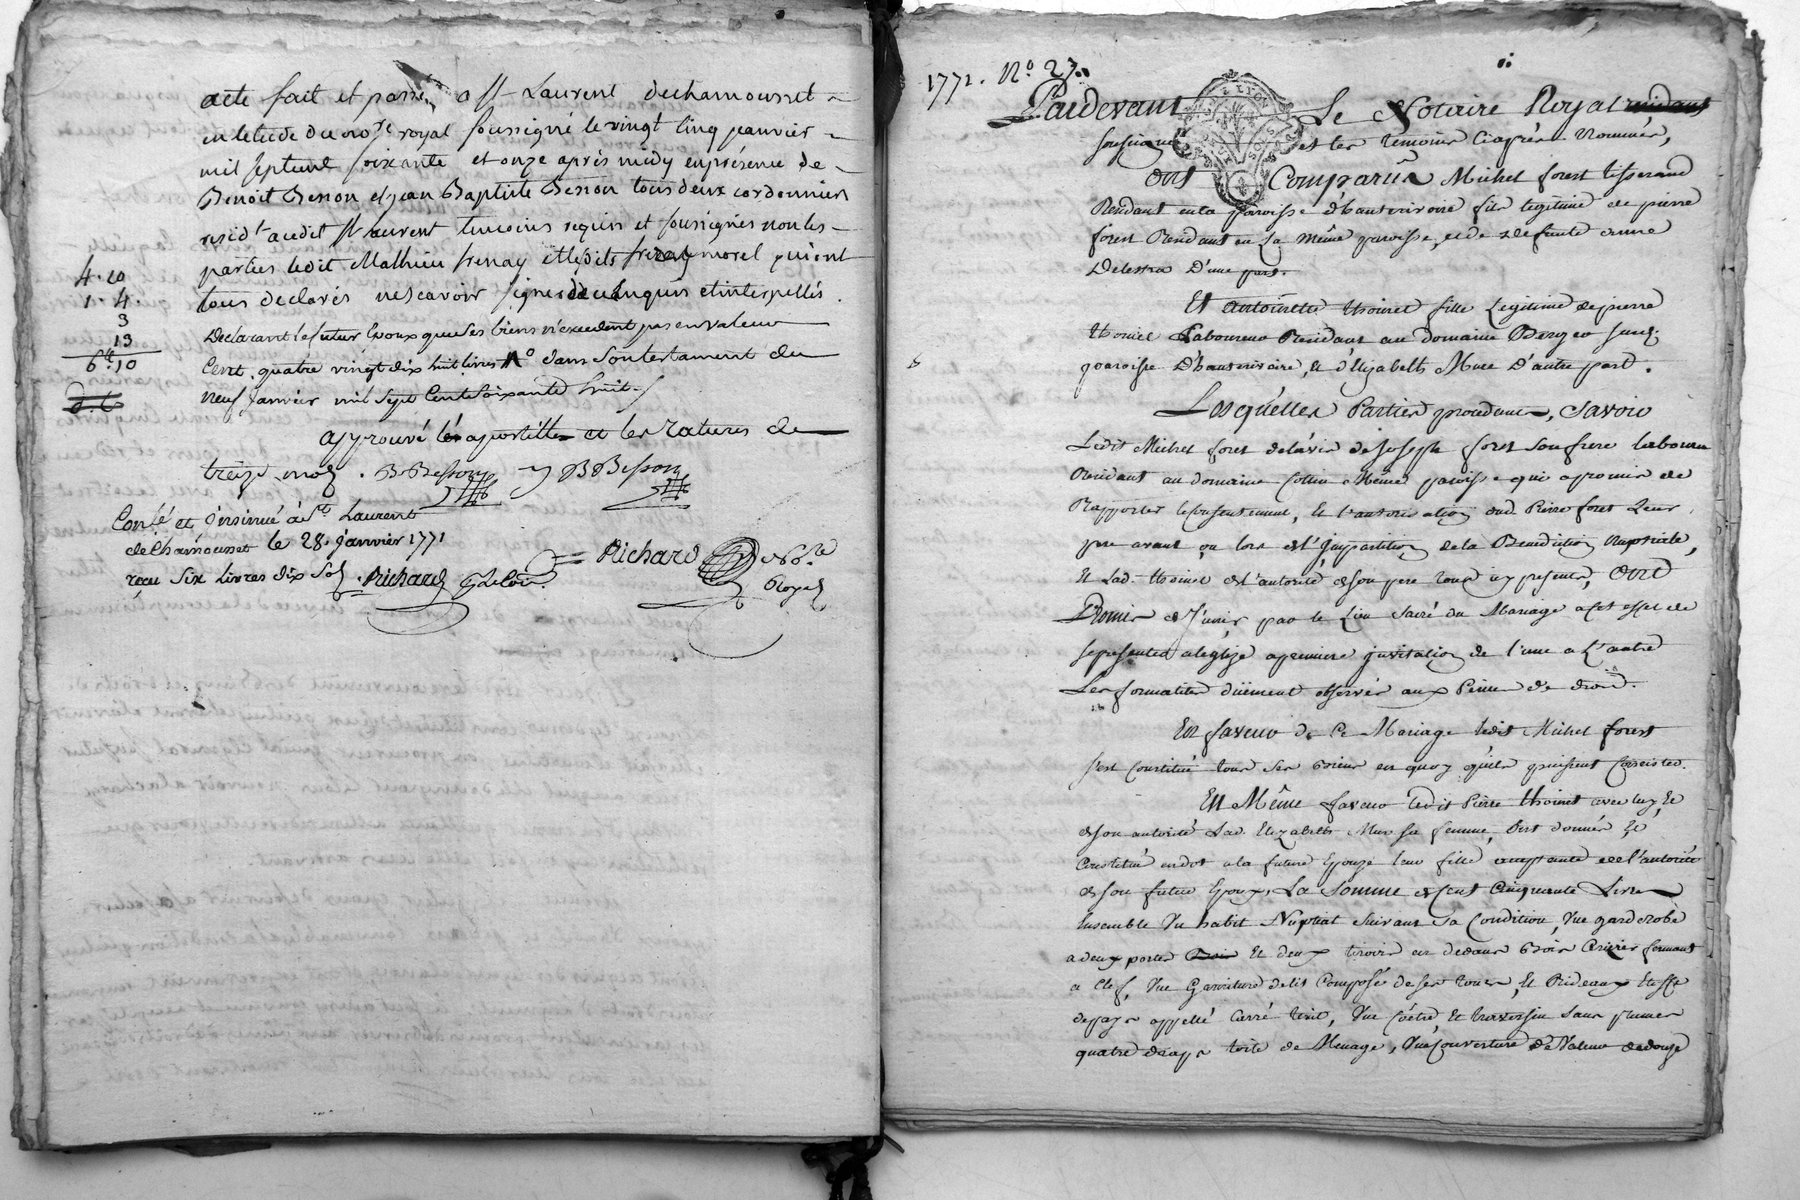 acte fait et passé a St Laurent dechamousset
en letude du nore royal soussigné le vingt cinq janvier
mil septcent soixante et onze après midy en présence de
Benoit Besson et jean Baptiste Besson tous deux cordonnier
resid.t audit St Laurent temoins requis et soussignés non les
parties ledit Mathieu frenay et lesdits morel qui ont
tous declarés ne scavoir signer de ce enquis et interpellés.
Declarant le futur Epoux que ses biens n'excedent pas en valeur
Cent quatre vingt dix huit livres dans son testament du
neuf janvier mil sept Cent soixante huit
4. 10
1. 4.
3
13
6lt. 10
approuvé les apostilles et les ratures de
treize mots. B Besson J B Besson
Conlé et Jnsinué à St Laurent
de Chamousset le 28. janvier 1771
reçu Six Livres dix Sols. Richard
Richard no.re Royal
1771. No. 27.
Pardevant Le Notaire Royal
soussigné et les temoins Ciaprès Nommés,
Ont Comparû Michel forest tisserand
Residant en la paroisse d'hauterivoire fils legitime de pierre
forest Residant en La même paroisse, et de defunte anne
Delestra D'une part.
Et antoinette thoinet fille Legitime de pierre
thoinet Laboureur Residant au domaine Berger susd.
paroisse D'hauterivoire, et d'Elizabeth Mure D'autre part.
Lesquelles Parties procedant, Savoir
Ledit Michel foret de l'avis de Joseph foret son frere laboureur
Residant au domaine Même paroisse qui a promis de
Rapporter le consentement, Et l'autorisation dud. Pierre foret Leur
pere avant, ou lors de l'Jmpartition de la Benediction Nuptiale,
Et Lad. thoinet de l'autorité de son pere tous icy presents, Ont
Promis de s'unir par le Lien Sacré du Mariage a Cet effet de
se presenter a l'eglize a premiere jnvitation de l'une a L'autre
Les formalités düement observés aux Peines de droit.
En faveur de Ce Mariage ledit Michel forest
s'est Constitué tous ses Biens en quoy qu'ils puissent Consister.
En Même faveur ledit Pierre thoinet avec luy, Et
de son autorité Lad. Elizabeth Mure sa femme, Ont donnés Et
Constitué en dot a la future Epouze leur fille acceptante de l'autorité
de son futur Epoux, La Somme de Cent Cinquante Livres
Ensemble Un habit Nuptial Suivant Sa Condition, Une garderobe
a deux portes Et deux tiroirs en dedans Bois Cerizier fermant
a Clef, Une Garniture de lit Composé de ses tours, Et Rideaux Etoffe
de pays appellé Carré tint, Une Coëtre Et traversin Sans plumes
quatre draps toile de Menage, Une Couverture de Valeur de douze